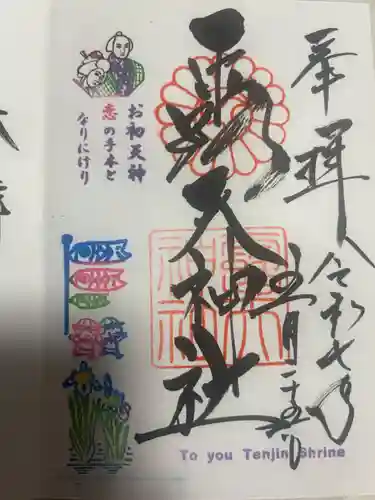 奉拝
令和七年
五月二十五日
露天神社
お初天神
恋の手本と
なりにけり
To you Tenjin Shrine